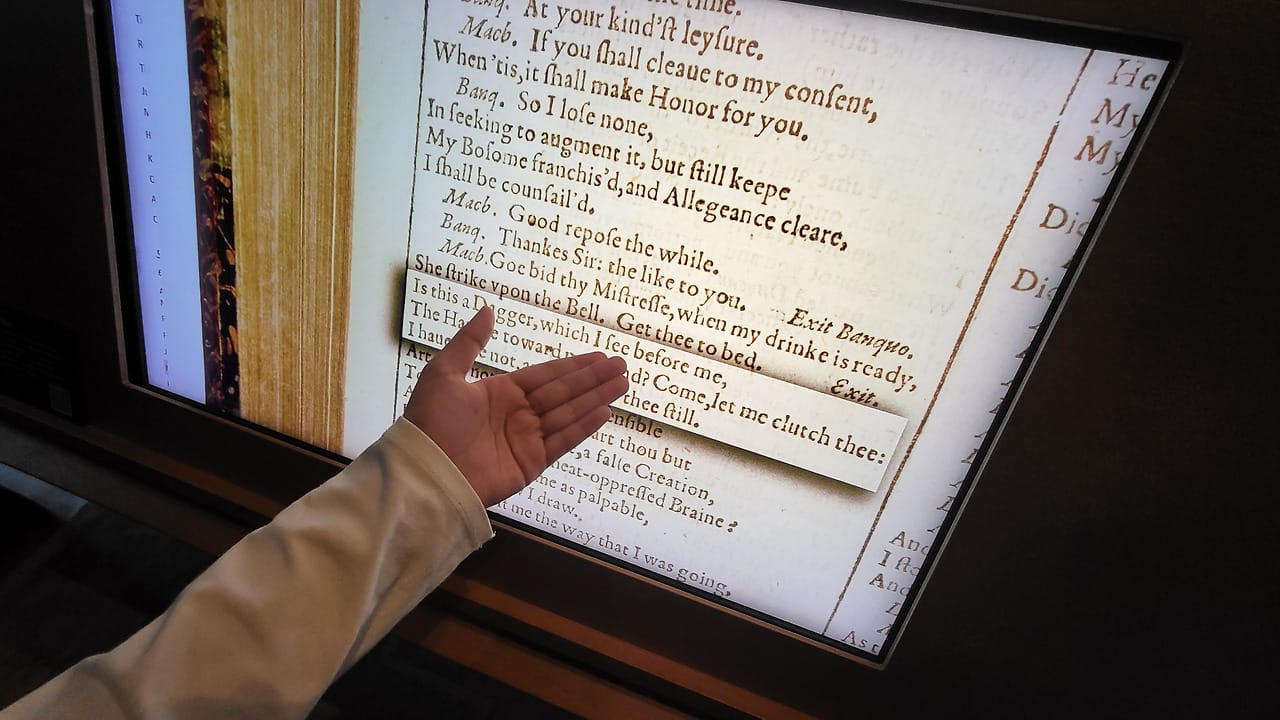 time.
Banq. At your kind'ſt leyſure.
Macb. If you ſhall cleaue to my conſent,
When 'tis, it ſhall make Honor for you.
Banq. So I loſe none,
In ſeeking to augment it, but ſtill keepe
My Boſome franchis'd, and Allegeance cleare,
I ſhall be counſail'd.
Macb. Good repoſe the while.
Banq. Thankes Sir: the like to you. Exit Banquo.
Macb. Goe bid thy Miſtreſſe, when my drinke is ready,
She ſtrike vpon the Bell. Get thee to bed. Exit.
Is this a Dagger, which I ſee before me,
The toward Come, let me clutch thee:
I haue not, thee ſtill.
Art
art thou but
, a falſe Creation,
heat-oppreſſed Braine?
me as palpable,
I draw.
me the way that I was going,
He
My
My
Die
Die
And
I
And
As